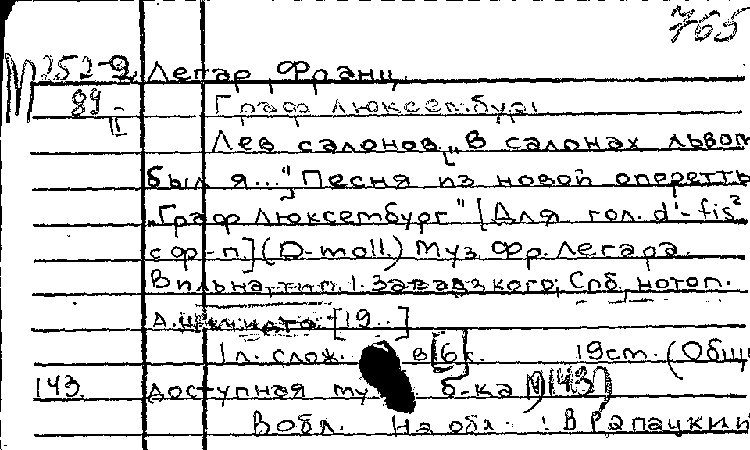 765
М 252-9 Легар, Франц.
89-II Граф Люксембург
Лев салонов "В салонах львом
был я..." Песня из новой оперетты
"Граф Люксембург" [Для гол. d'-fis²
с ф-п] (D-moll.) Муз. Фр. Легара.
Вильна, тип. I. Завадзкого; Спб, нотоп.
А. [19..]
1 л. слож. в [6] с. 19 см. (Общ
143. доступная б-ка №143)
В обл. На обл.: В Рапацкий